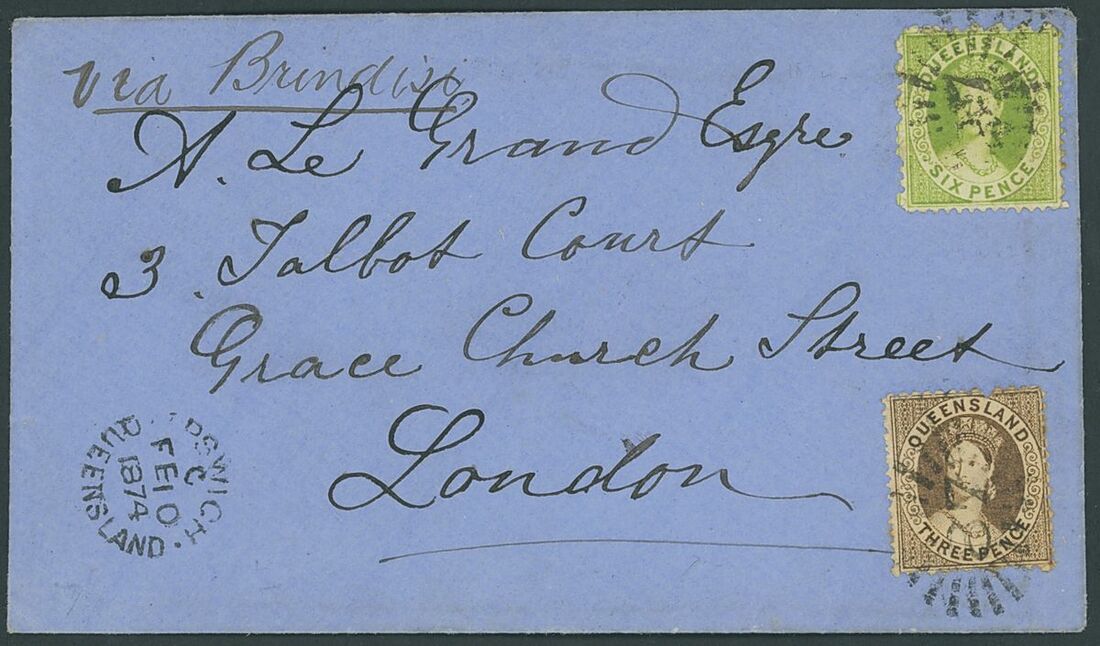 via Brindisi
A. Le Grand Esqre
3. Talbot Court
Grace Church Street
London
QUEENSLAND
SIX PENCE
QUEENSLAND
THREE PENCE
IPSWICH
C
FE 10
1874
QUEENSLAND